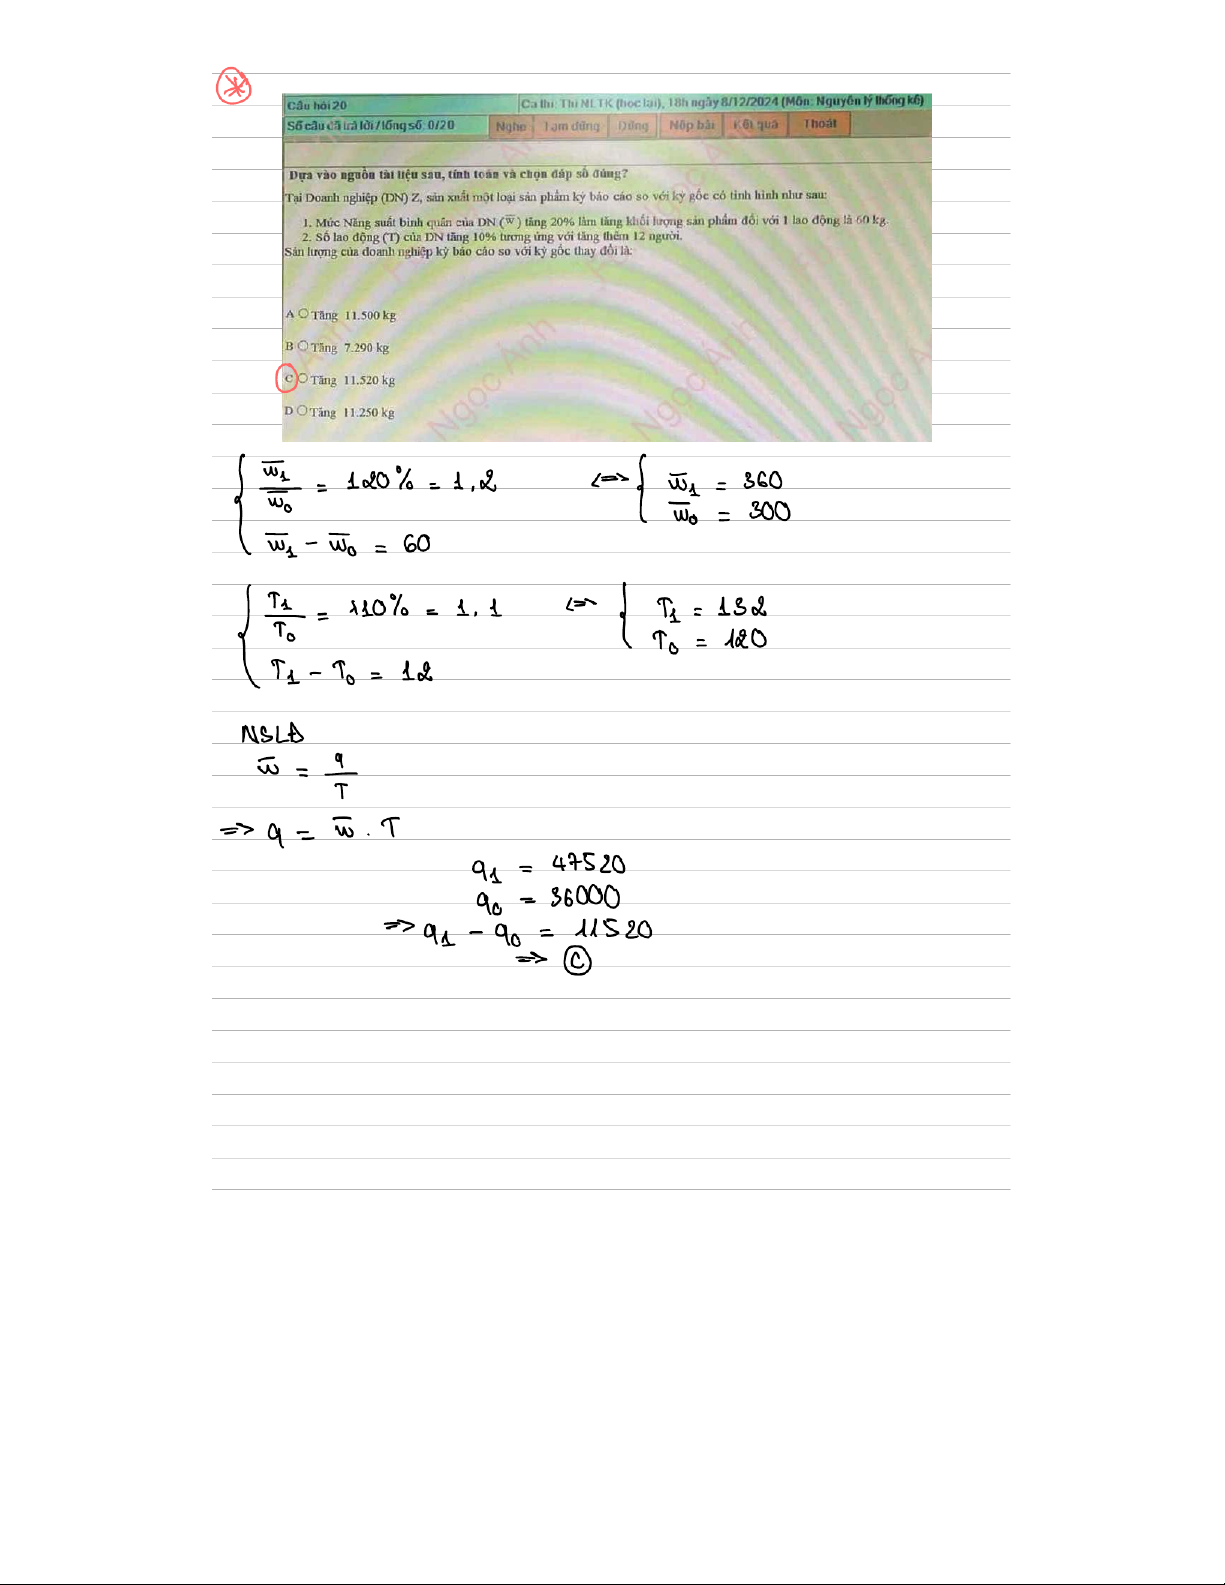 Câu hỏi 20
Ca thi: Thi NLTK (học lại), 18h ngày 8/12/2024 (Môn: Nguyên lý thống kê)
Số câu đã trả lời/tổng số: 0/20
Nghe Tạm dừng Dừng Nộp bài Kết quả Thoát
Dựa vào nguồn tài liệu sau, tính toán và chọn đáp số đúng?
Tại Doanh nghiệp (DN) Z, sản xuất một loại sản phẩm kỳ báo cáo so với kỳ gốc có tình hình như sau:
1. Mức Năng suất bình quân của DN (w̅) tăng 20% làm tăng khối lượng sản phẩm đối với 1 lao động là 60 kg.
2. Số lao động (T) của DN tăng 10% tương ứng với tăng thêm 12 người.
Sản lượng của doanh nghiệp kỳ báo cáo so với kỳ gốc thay đổi là:
A Tăng 11.500 kg
B Tăng 7.290 kg
C Tăng 11.520 kg
D Tăng 11.250 kg
Ngọc Ánh Ngọc Ánh Ngọc Ánh
w̅₁/w̅₀ = 120% = 1,2 <=> w̅₁ = 360
w̅₀ = 300
w̅₁ - w̅₀ = 60
T₁/T₀ = 110% = 1,1 <=> T₁ = 132
T₀ = 120
T₁ - T₀ = 12
NSLĐ
w̅ = q/T
=> q = w̅ . T
q₁ = 47520
q₀ = 36000
=> q₁ - q₀ = 11520
=> C